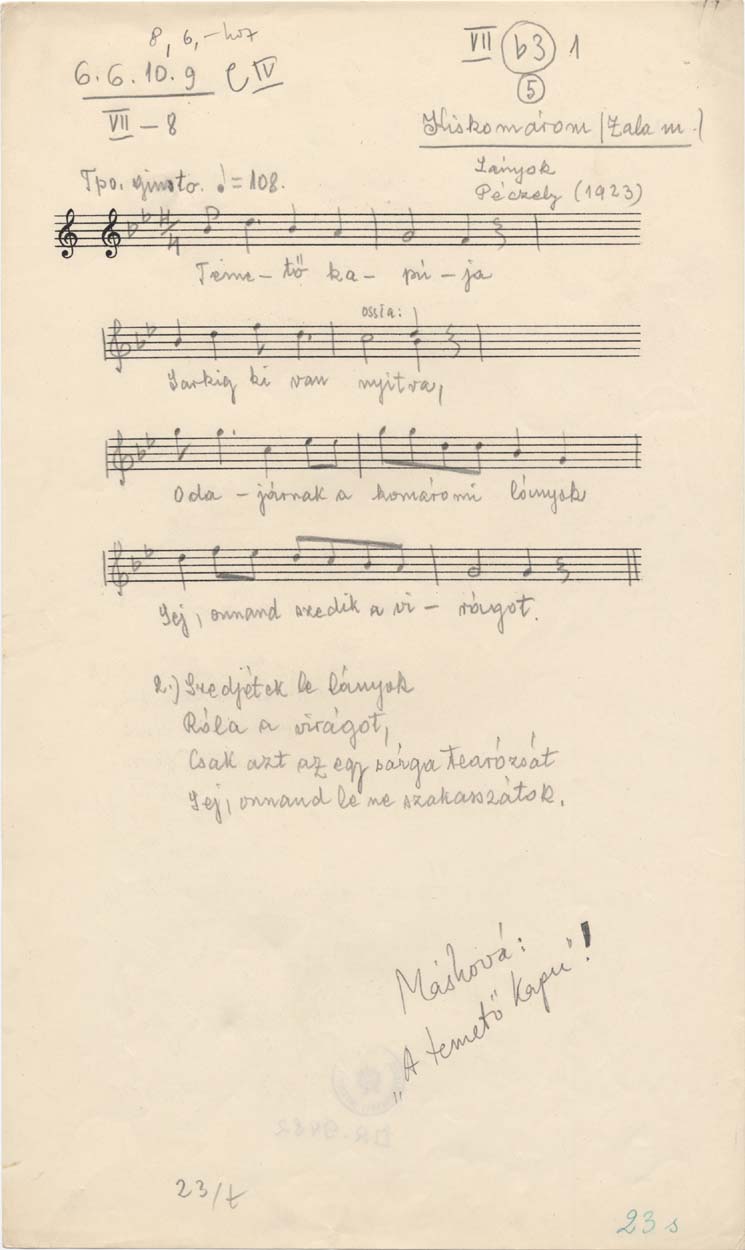 8, 6,-hoz
6.6.10.9 C IV
VII - 8
VII b3 1
5
Kiskomárom (Zala m.)
Lányok
Péczely (1923)
Tpo. giusto. ♩ = 108.
4/4
Teme - tő ka - pu - ja
ossia:
Sarkig ki van nyitva,
Oda - járnak a komáromi lányok
Jej, onnand szedik a vi - rágot.
2.) Szedjétek le lányok
Róla a virágot,
Csak azt az egy sárga tearózsát
Jej, onnand le ne szakasszátok.
Máshová:
"A temető kapu"!
23/t
23 s